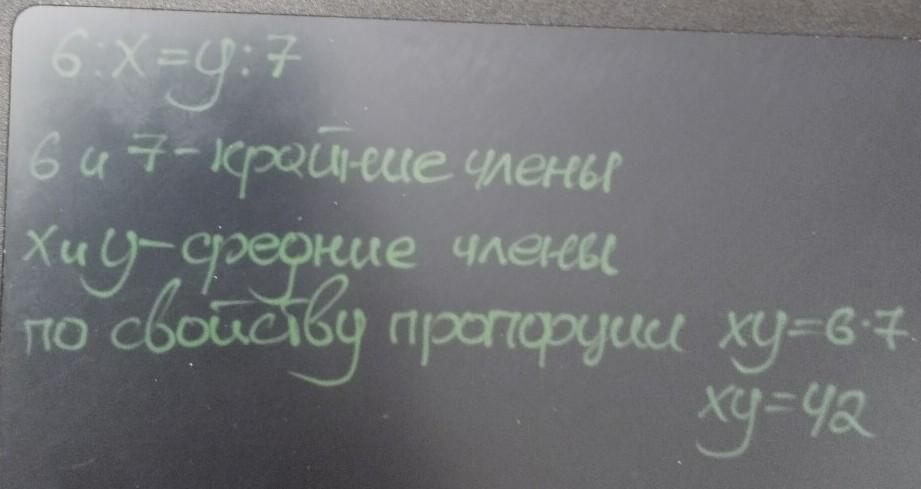 6:x=y:7
6 и 7-крайние члены
x и y-средние члены
по свойству пропорции xy=6·7
xy=42